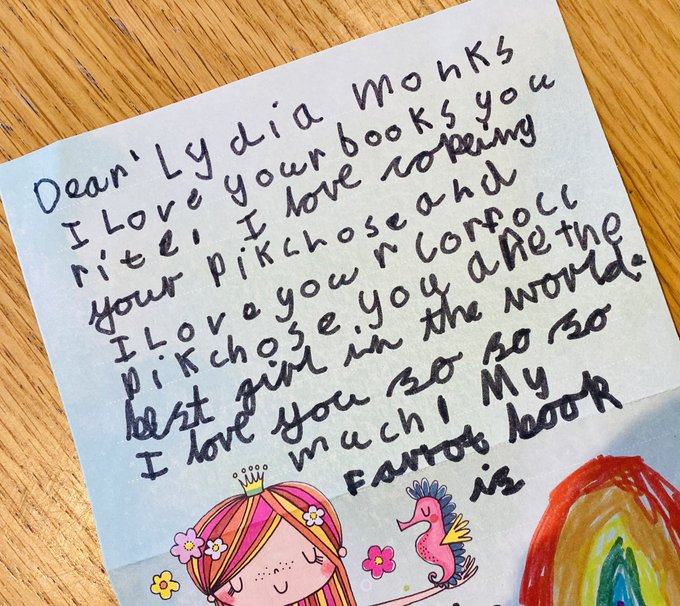 Dear' Lydia Monks
I Love your books you
rite, I love copeing
your pikchose and
I Love your corfocc
pikchose you are the
best girl in the world.
I love you so so so
much! My
Farrot book
is